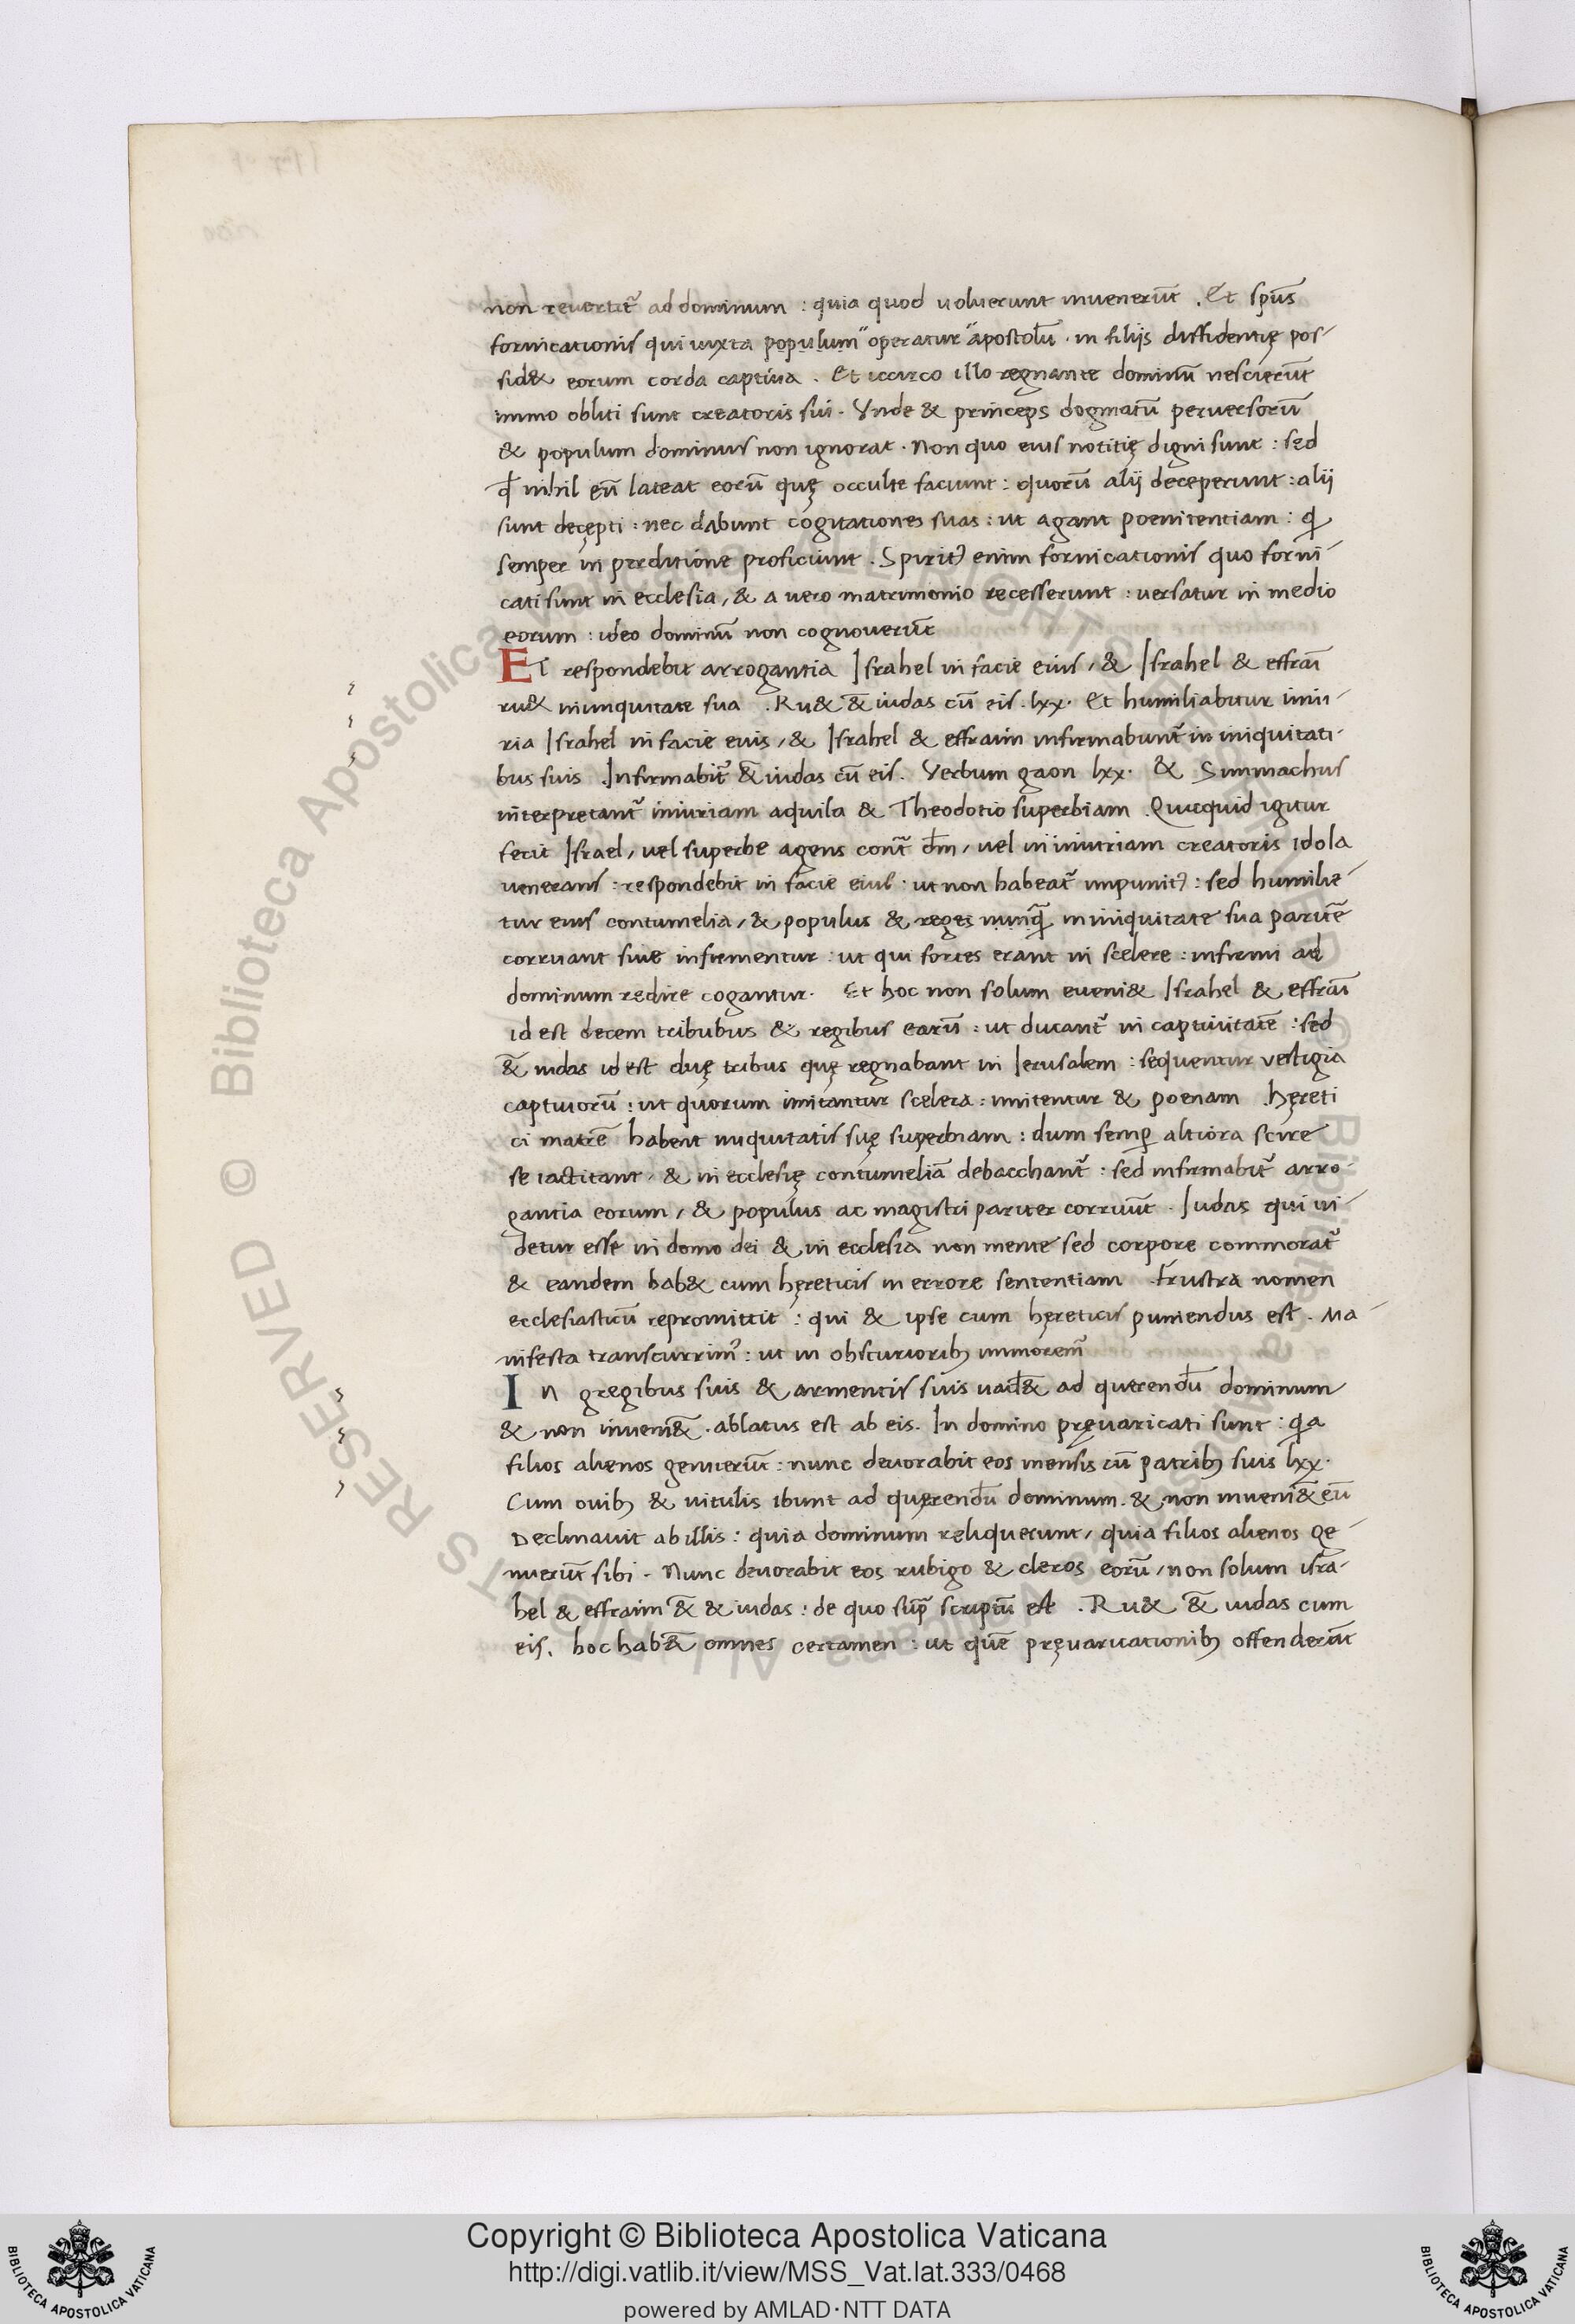 non revertit᷑ ad dominum : quia quod voluerunt invenerūt . Et spūs
fornicationis qui iuxta populum operatur apostolū · in filijs diffidentię pos-
sid& eorum corda captiva . Et iccirco illo regnante dominū nescierūt
immo obliti sunt creatoris sui . Vnde & princeps dogmatū perversorū
& populum dominus non ignorat . Non quo eius notitię digni sunt : sed
qđ nihil eū lateat eorū quę occulte faciunt : quorū alij deceperunt : alij
sunt decępti : nec dabunt cogitationes suas : ut agant poenitentiam : q̄
semper in perditione proficiunt . Spirit᾽ enim fornicationis quo forni-
cati sunt in ecclesia , & a vero matrimonio recesserunt : versatur in medio
eorum : ideo dominū non cognoverūt
ET respondebit arrogantia Israhel in facie eius , & Israhel & effraī
ru& in iniquitate sua . Ru& &̄ iudas cū eis . lxx . Et humiliabitur iniu-
ria Israhel in facie eius , & Israhel & effraim infirmabunt᷑ in iniquitati-
bus suis . Infirmabit᷑ &̄ iudas cū eis . Verbum gaon lxx . & Simmachus
interpretant᷑ iniuriam aquila & Theodotio superbiam . Quicquid igitur
fecit Israel , vel superbe agens cont᷑ dm̄ , vel in iniuriam creatoris idola
venerans : respondebit in facie eius : ut non habeat᷑ impunit᾽ : sed humilie-
tur eius contumelia , & populus & reges nunq̄ in iniquitate sua paritē
corruant sive infirmentur : ut qui fortes erant in scelere : infirmi ad
dominum redire cogantur . Et hoc non solum eveni& Israhel & effraī
id est decem tribubus & regibus earū : ut ducant᷑ in captivitatē : sed
&̄ iudas id est duę tribus quę regnabant in Ierusalem : sequentur vestigia
captivorū : ut quorum imitantur scelera : imitentur & poenam . hęreti
ci matrē habent iniquitatis suę superbiam : dum semp̄ altiora scire
se iactitant , & in ecclesię contumeliā debacchant᷑ : sed infirmabit᷑ arro-
gantia eorum , & populus ac magistri pariter corruūt . Iudas qui vi-
detur esse in domo dei & in ecclesia non mente sed corpore commorat᷑
& eandem hab& cum hęreticis in errore sententiam . frustra nomen
ecclesiasticū repromittit : qui & ipse cum hęreticis puniendus est . Ma-
nifesta transcurrim᾽ : ut in obscuriorib; immorem᷑
In gregibus suis & armentis suis vad& ad querendū dominum
& non inveni& . ablatus est ab eis . In domino pręvaricati sunt : q̄a
filios alienos genuerūt : nunc devorabit eos mensis cū patrib; suis lxx .
Cum ovib; & vitulis ibunt ad quęrendū dominum . & non inveni& eū
Declinavit ab illis : quia dominum reliquerunt , quia filios alienos ge-
nuerūt sibi . Nunc devorabit eos rubigo & cleros eorū , non solum isra-
hel & effraim &̄ & iudas : de quo sup̄ scriptū est . Ru& &̄ iudas cum
eis . hoc hab& omnes certamen : ut quē pręvaricationib; offenderūt
Copyright © Biblioteca Apostolica Vaticana
http://digi.vatlib.it/view/MSS_Vat.lat.333/0468
powered by AMLAD·NTT DATA